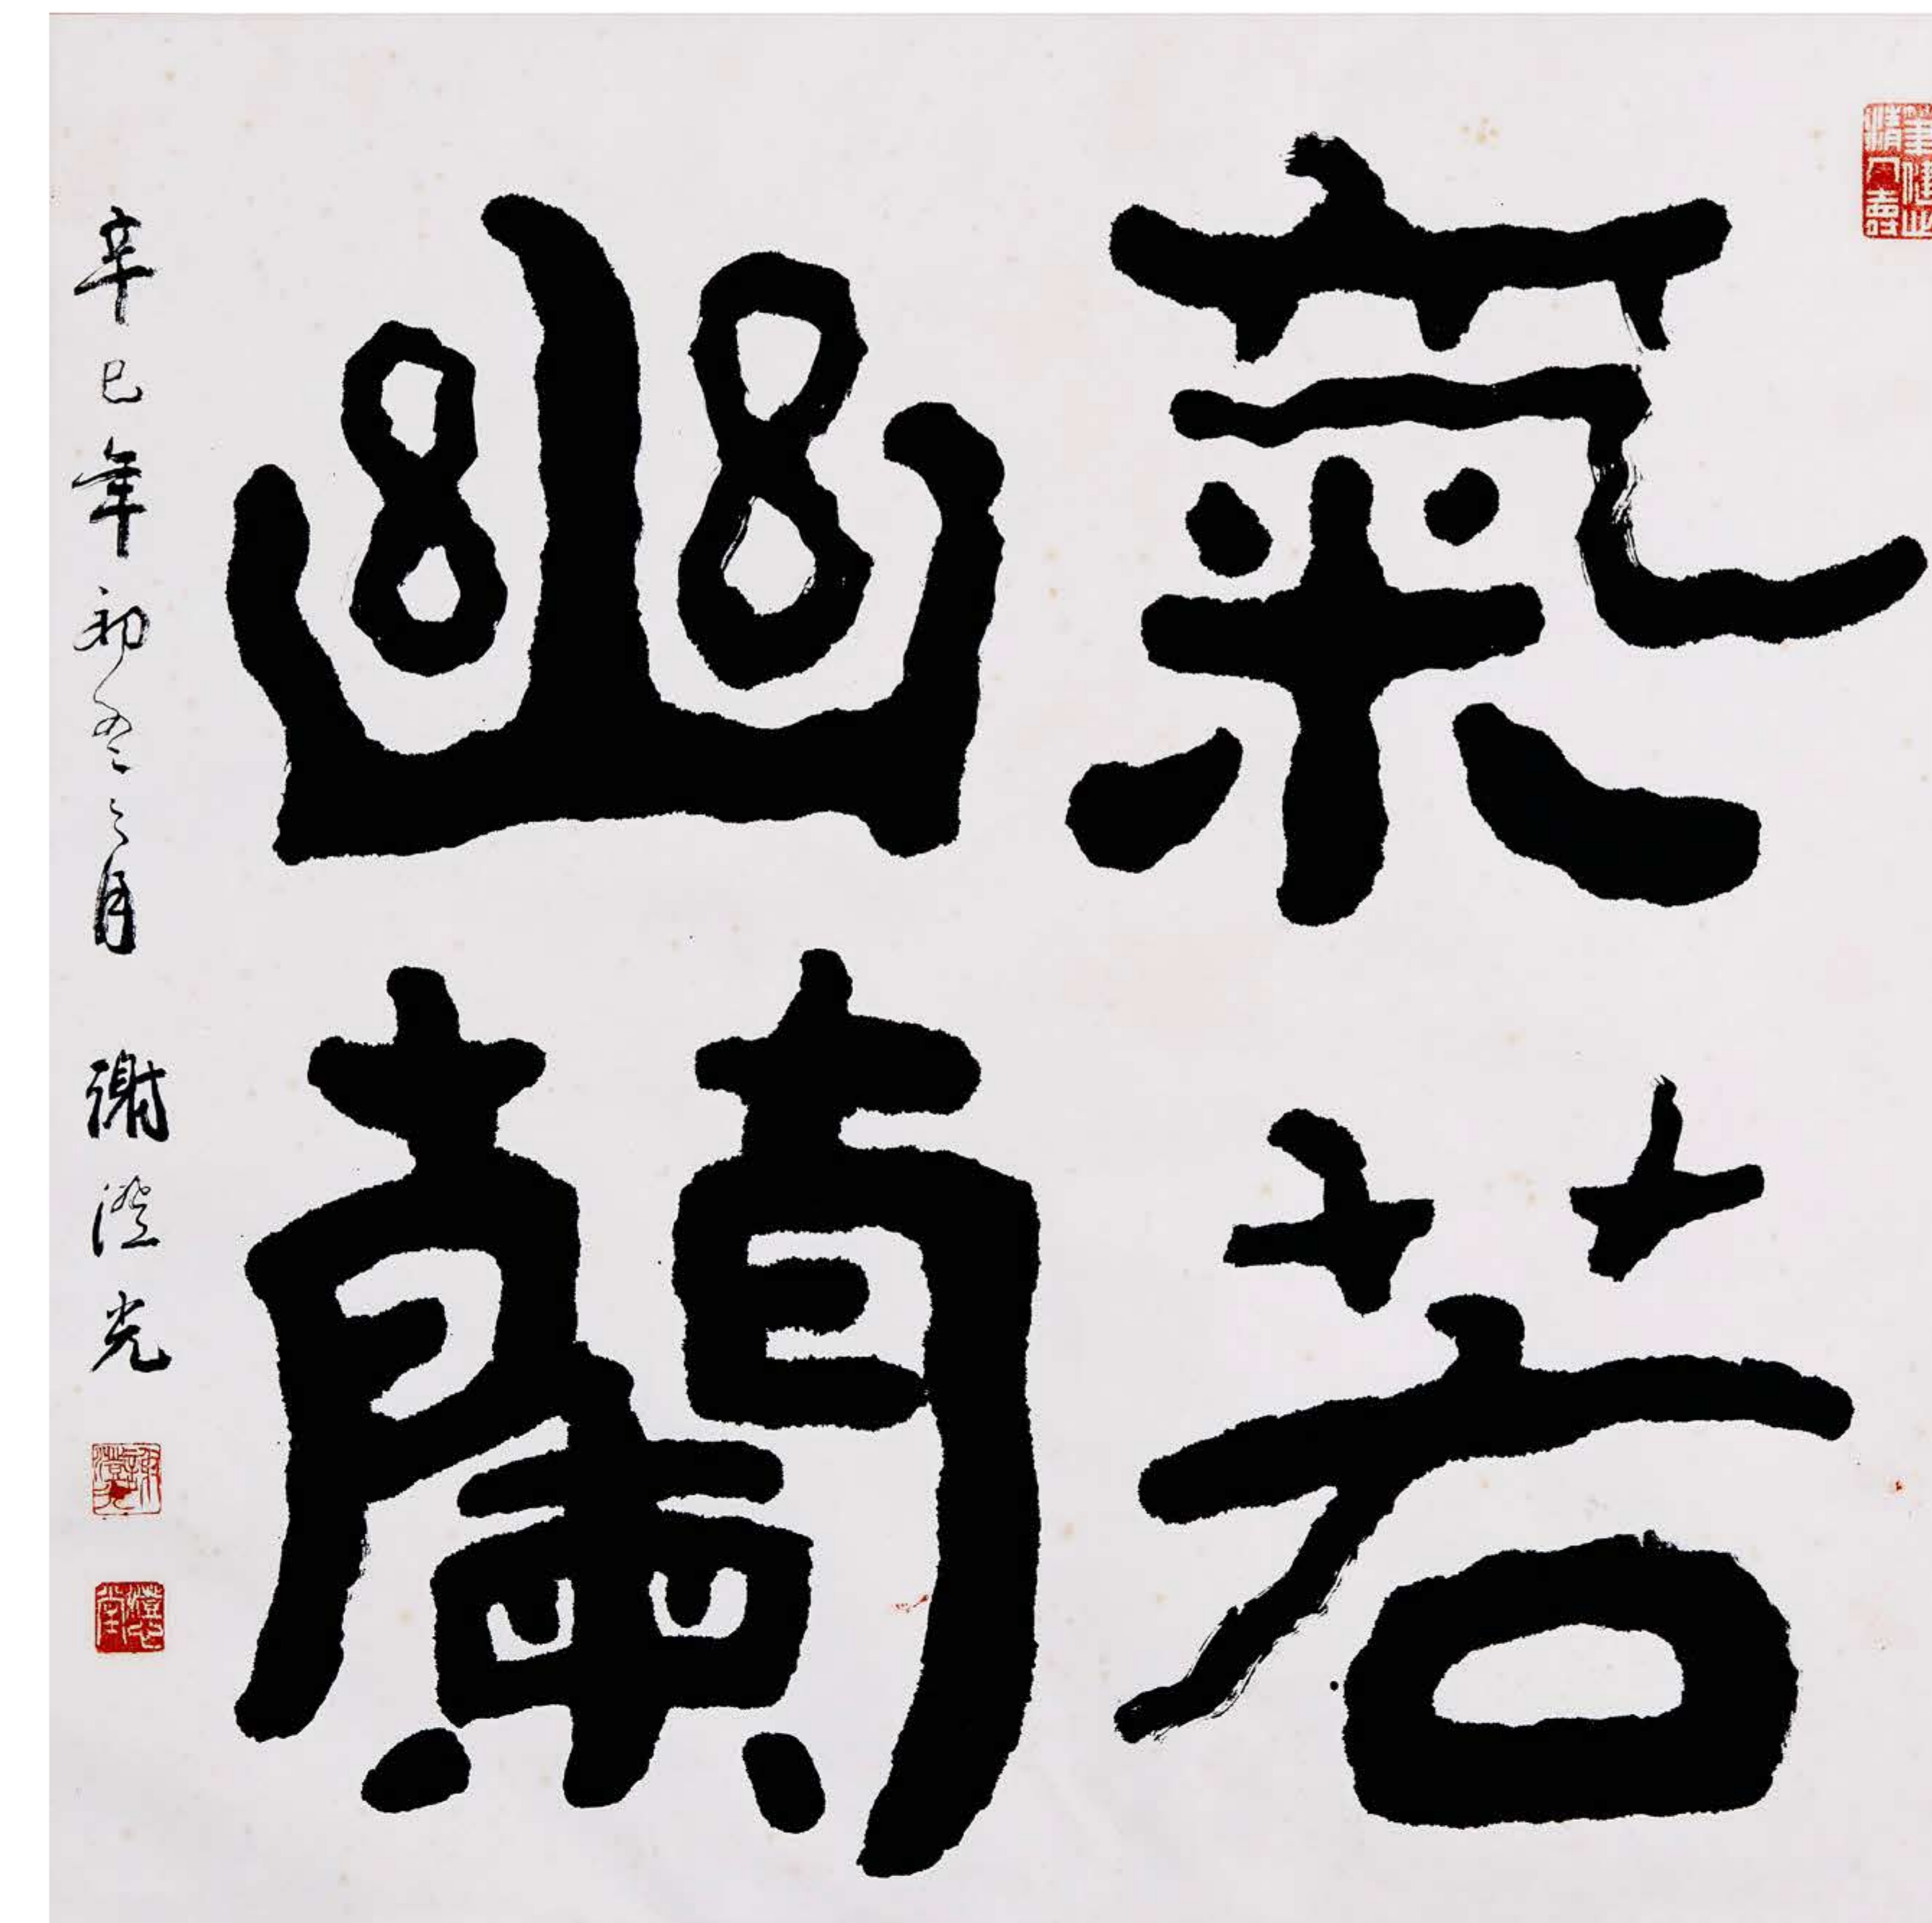 氣若
幽蘭
辛巳年初冬之月 謝澄光
謝澄光